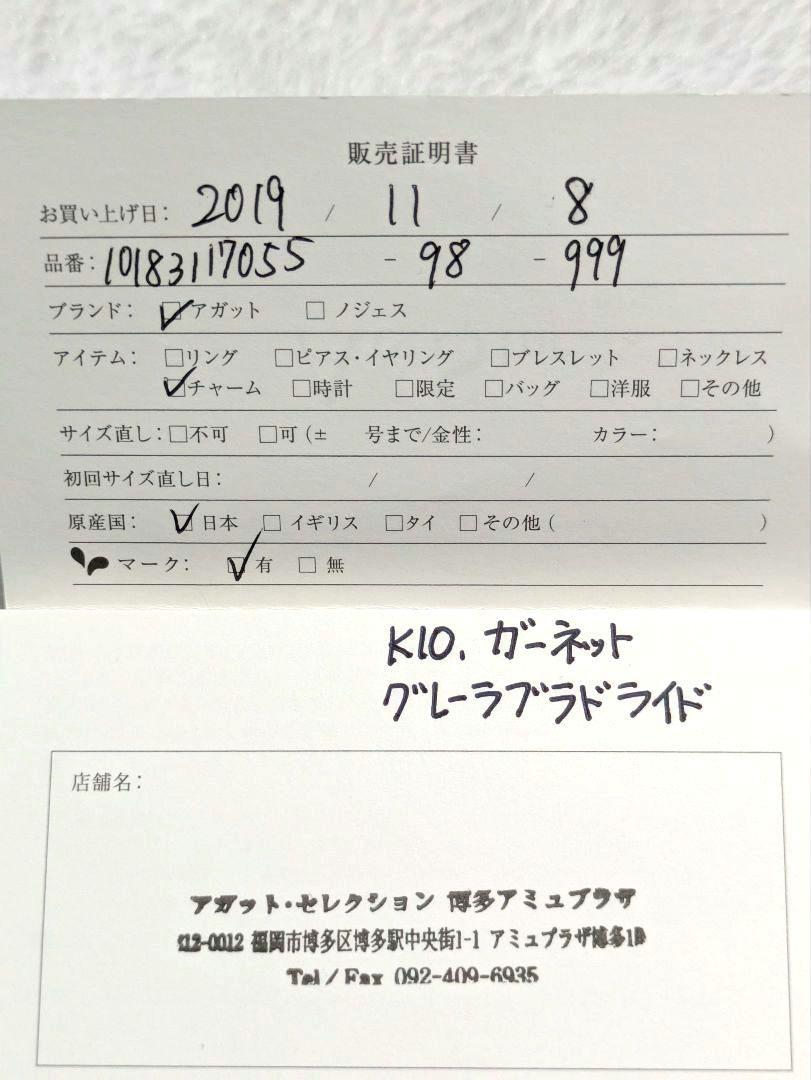 販売証明書
お買い上げ日: 2019 / 11 / 8
品番: 10183117055 - 98 - 999
ブランド: ☑アガット □ノジェス
アイテム: □リング □ピアス・イヤリング □ブレスレット □ネックレス
☑チャーム □時計 □限定 □バッグ □洋服 □その他
サイズ直し: □不可 □可 (± 号まで/金性: カラー: )
初回サイズ直し日: / /
原産国: ☑日本 □イギリス □タイ □その他 ( )
マーク: ☑有 □無
K10. ガーネット
グレーラブラドライド
店舗名:
アガット・セレクション 博多アミュプラザ
812-0012 福岡市博多区博多駅中央街1-1 アミュプラザ博多1F
Tel / Fax 092-409-6935